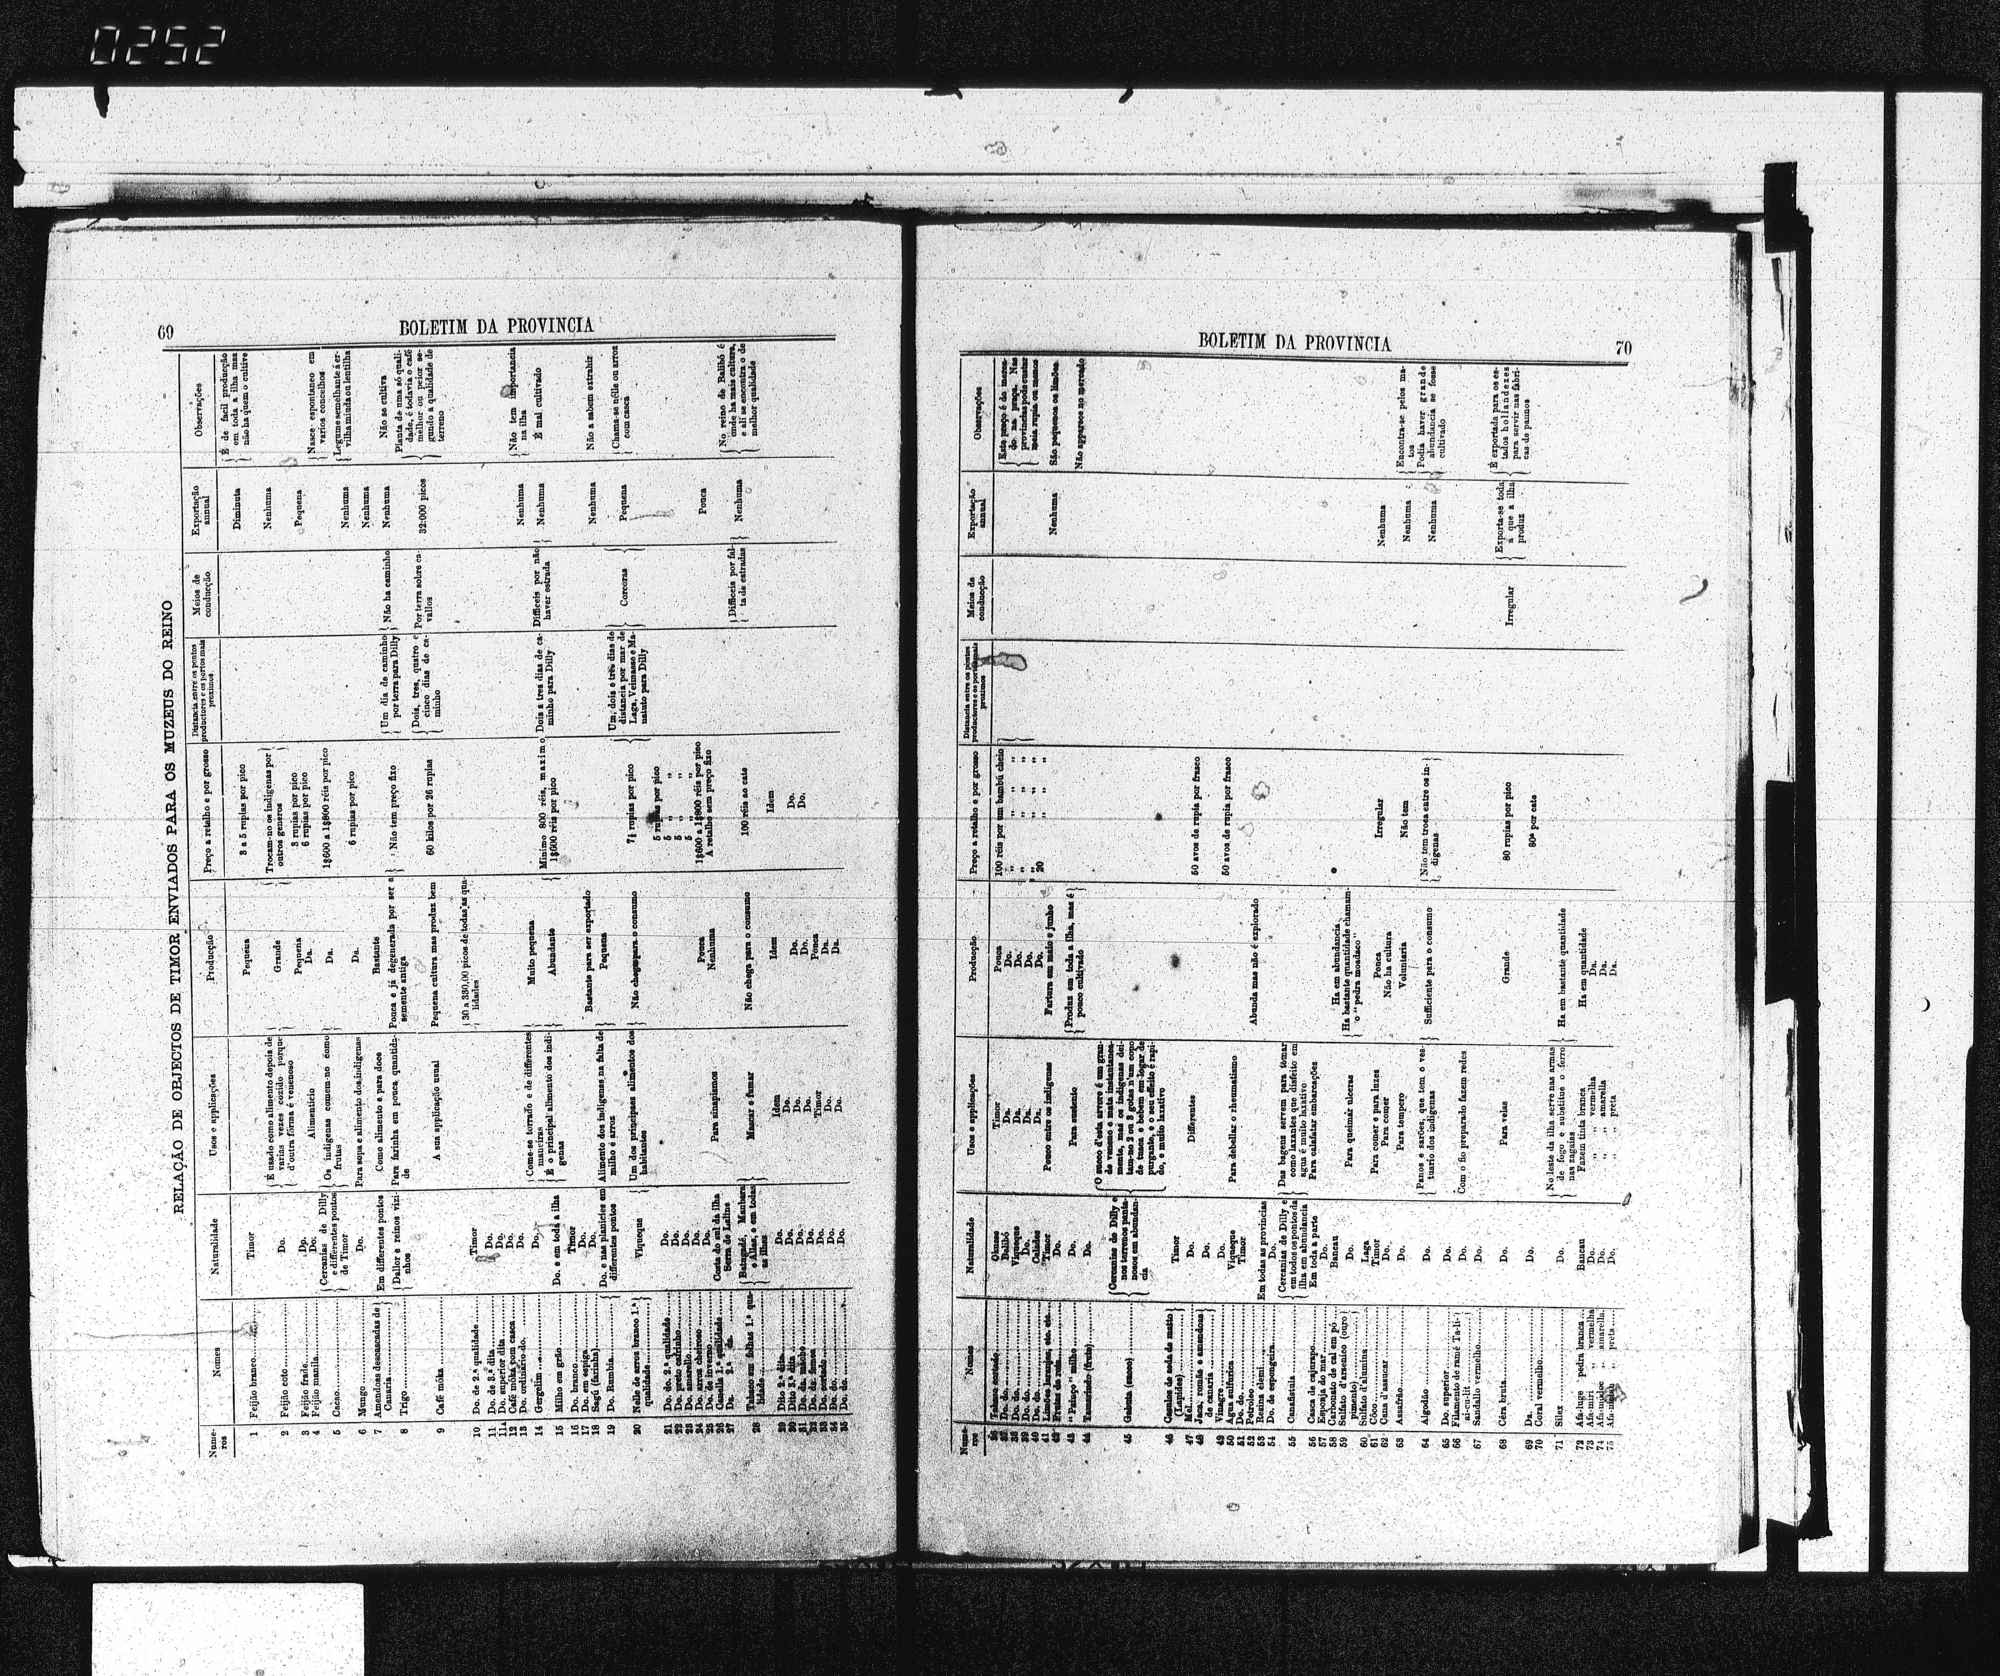 0252
69
BOLETIM DA PROVINCIA
RELAÇÃO DE OBJECTOS DE TIMOR ENVIADOS PARA OS MUZEUS DO REINO
Nume-
ros
Nomes
Naturalidade
Usos e applicações
Producção
Preço a retalho e por grosso
Distancia entre os pontos
productores e os portos mais
proximos
Meios de
conducção
Exportação
annual
Observações
1 Feijão branco Timor Pequena 3 a 5 rupias por pico Diminuta É de facil producção
em toda a ilha mas
não ha quem o cultive
2 Feijão coto Do. É usado como alimento depois de
varias vezes cozido porque
d'outra fórma é venenoso
Grande Trocam-no os indigenas por
outros generos
Nenhuma
3 Feijão frade Do. Alimenticio Pequena 3 rupias por pico Pequena
4 Feijão manila Do. Da. 6 rupias por pico
Nasce espontaneo em
varios concelhos
5 Cacao Cercanias de Dilly
e differentes pontos
de Timor
Os indigenas comem-no como
frutas
Da. 1$600 a 1$800 réis por pico Nenhuma Legume semelhante á er-
vilha miuda ou lentilha
6 Mungo Do. Para sopa e alimento dos indigenas Da. 6 rupias por pico Nenhuma
7 Amendoas descascadas de
Canaria
Em differentes pontos Como alimento e para doce Bastante Não tem preço fixo Um dia de caminho
por terra para Dilly
Não ha caminho Nenhuma Não se cultiva
8 Trigo Dallor e reinos vizi-
nhos
Para farinha em pouca quantida-
de
Pouca e já degenerada por ser a
semente antiga
9 Café móka A sua applicação usual Pequena cultura mas produz bem 60 kilos por 26 rupias Dois, tres, quatro e
cinco dias de ca-
minho
Por terra sobre ca-
vallos
32:000 picos Planta de uma só quali-
dade, é todavia o café
melhor ou peior se-
gundo a qualidade de
terreno
10 Do. de 2.ª qualidade Timor 30 a 330,00 picos de todas as qua-
lidades
11 Do. de 3.ª dita Do.
11ª Do. superior dita Do.
12 Café móka com casca Do.
13 Do. ordinario do. Do.
14 Gergelim Do. Come-se torrado e de differentes
maneiras
Muito pequena Minimo 800 réis, maximo
1$600 réis por pico
Nenhuma Não tem importancia
na ilha
15 Milho em grão Do. e em toda a ilha É o principal alimento dos indi-
genas
Abundante Dois a tres dias de ca-
minho para Dilly
Difficeis por não
haver estrada
Nenhuma É mal cultivado
16 Do. branco Timor
17 Do. em espiga Do.
18 Sagú (farinha) Do. Bastante para ser exportado Nenhuma Não a sabem extrahir
19 Do. Rumbia Do. e nas planicies em
differentes pontos
Alimento dos indigenas na falta de
milho e arroz
Pequena
20 Nelle de arroz branco 1.ª
qualidade
Viqueque Um dos principaes alimentos dos
habitantes
Não chega para o consumo 7½ rupias por pico Um, dois e três dias de
distancia por mar de
Laga, Veimasse e Ma-
natuto para Dilly
Corcoras Pequena Chama-se nélle ou arroz
com casca
21 Do. do. 2.ª qualidade Do. 5 rupias por pico
22 Do. preto Do. 5 „ „
23 Do. amarello Do. 5 „ „
24 Do. arroz cheiroso Do. Pouca 5 „ „
25 Do. de inverno Do. Nenhuma
26 Canella 1.ª qualidade Costa do sul da ilha Para sinapismos 1$600 a 1$800 réis por pico Pouca
27 Da. 2.ª da. Serra de A retalho sem preço fixo
28 Tabaco em folhas 1.ª qua-
lidade
e Allas, e em todas
as ilhas
Mascar e fumar Não chega para o consumo 100 réis ao cate Difficeis por fal-
ta de estradas
Nenhuma No reino de Balibó é
onde ha mais cultura,
e ali se encontra o de
melhor qualidade
29 Dito 2.ª dita Do. Idem Idem Idem
30 Dito 3.ª dita Do. Do. Do. Do.
31 Do. Do. Do. Do. Do.
32 Do. Do. Do. Pouca
33 Do. Do. Timor Da.
34 Do. do. Do. Do. Da.
35 Do. do. Do. Do.
BOLETIM DA PROVINCIA
70
Nume-
ros
Nomes
Naturalidade
Usos e applicações
Producção
Preço a retalho e por grosso
Distancia entre os pontos
productores e os portos mais
proximos
Meios de
conducção
Exportação
annual
Observações
36 Timor Pouca 100 réis por um bambú cheio Este preço é do merca-
do na praça. Nas
provincias pode custar
meia rupia ou menos
37 Do. do. Balibó Da. Do. „ „ „
38 Do. do. Viqueque Da. Do. „ „ „
39 Do. do. Do. Da. Do. „ „ „
40 Do. do. Da. Do. 20 „ „
41 Limões laranjas, etc. etc. Timor Pouco entre os indigenas Fartura em maio e junho Nenhuma São pequenos os limões
42 Do.
43 “Painço” milho Do. Para sustento Produz em toda a ilha, mas é
pouco cultivado
Não apparece no mercado
44 Tamarindo (fruto) Do.
45 Cercanias de Dilly e
nos terrenos panta-
nosos em abundan-
cia
O succo d'esta arvore é um gran-
de veneno e mata instantanea-
mente, mas os indigenas dei-
tam-no 2 ou 3 gotas n'um copo
de tuaca e bebem em logar de
purgante, e o seu effeito é rapi-
do, e muito laxativo
46 Casulos de seda de matto
Timor
47 Mel Do. Differentes 50 avos de rupia por frasco
48 Jaca, romão e amendoas
de canaria
Do.
49 Vinagre Do. 50 avos de rupia por frasco
50 Agua sulfurica Viqueque Para debellar o rheumatismo
51 Do. do. Timor
52 Petroleo Abunda mas não é explorado
53 Resina elemi Em todas as provincias
54 Do. de esponguira Do.
55 Canafistula Cercanias de Dilly e
em todos os pontos da
ilha em abundancia
Das bagens servem para tomar
como laxantes que disfeito em
agua é muito laxativo
56 Casca de cajurapo Em toda a parte Para calafatar embarcações
57 Esponja do mar Do.
58 Carbonato de cal em pó Baucau Ha em abundancia
59 Sulfato d'arsenico (ouro
pimento)
Do. Para queimár ulceras Ha bastante quantidade chamam-
o “pedra moadaco”
60 Sulfato d'alumina Laga
61 Côco Timor Para comer e para luzes Pouca Irregular Nenhuma
62 Cana d'assucar Do. Para comer Não ha cultura
63 Assafrão Do. Para tempero Voluntaria Não tem Nenhuma Encontra-se pelos ma-
tos
64 Algodão Do. Panos e sarões, que são o ves-
tuario dos indigenas
Sufficiente para o consumo Não tem troca entre os in-
digenas
Nenhuma Podia haver grande
abundancia se fosse
cultivado
65 Do. superior Do.
66 Filamento de ramé Ta-li-
ai-cu-lit
Do. Com o fio preparado fazem redes
67 Sandallo vermelho Do.
68 Cêra bruta Do. Para velas Grande 80 rupias por pico Irregular Exporta-se toda
a que a ilha
produz
É exportada para os es-
tados hollandezes
para servir nas fabri-
cas de pannos
69 Da. Do. 80ª por cate
70 Coral vermelho
71 Silex Do. No leste da ilha serve nas armas
de fogo e substitue o ferro
nas zagaias
Ha em bastante quantidade
72 Afa-luge pedra branca Baucau Fazem tinta branca Ha em quantidade
73 Afa-miri „ vermelha Do. „ „ vermelha Da.
74 „ amarella Do. „ „ amarella Da.
75 „ preta Do. „ „ preta Da.